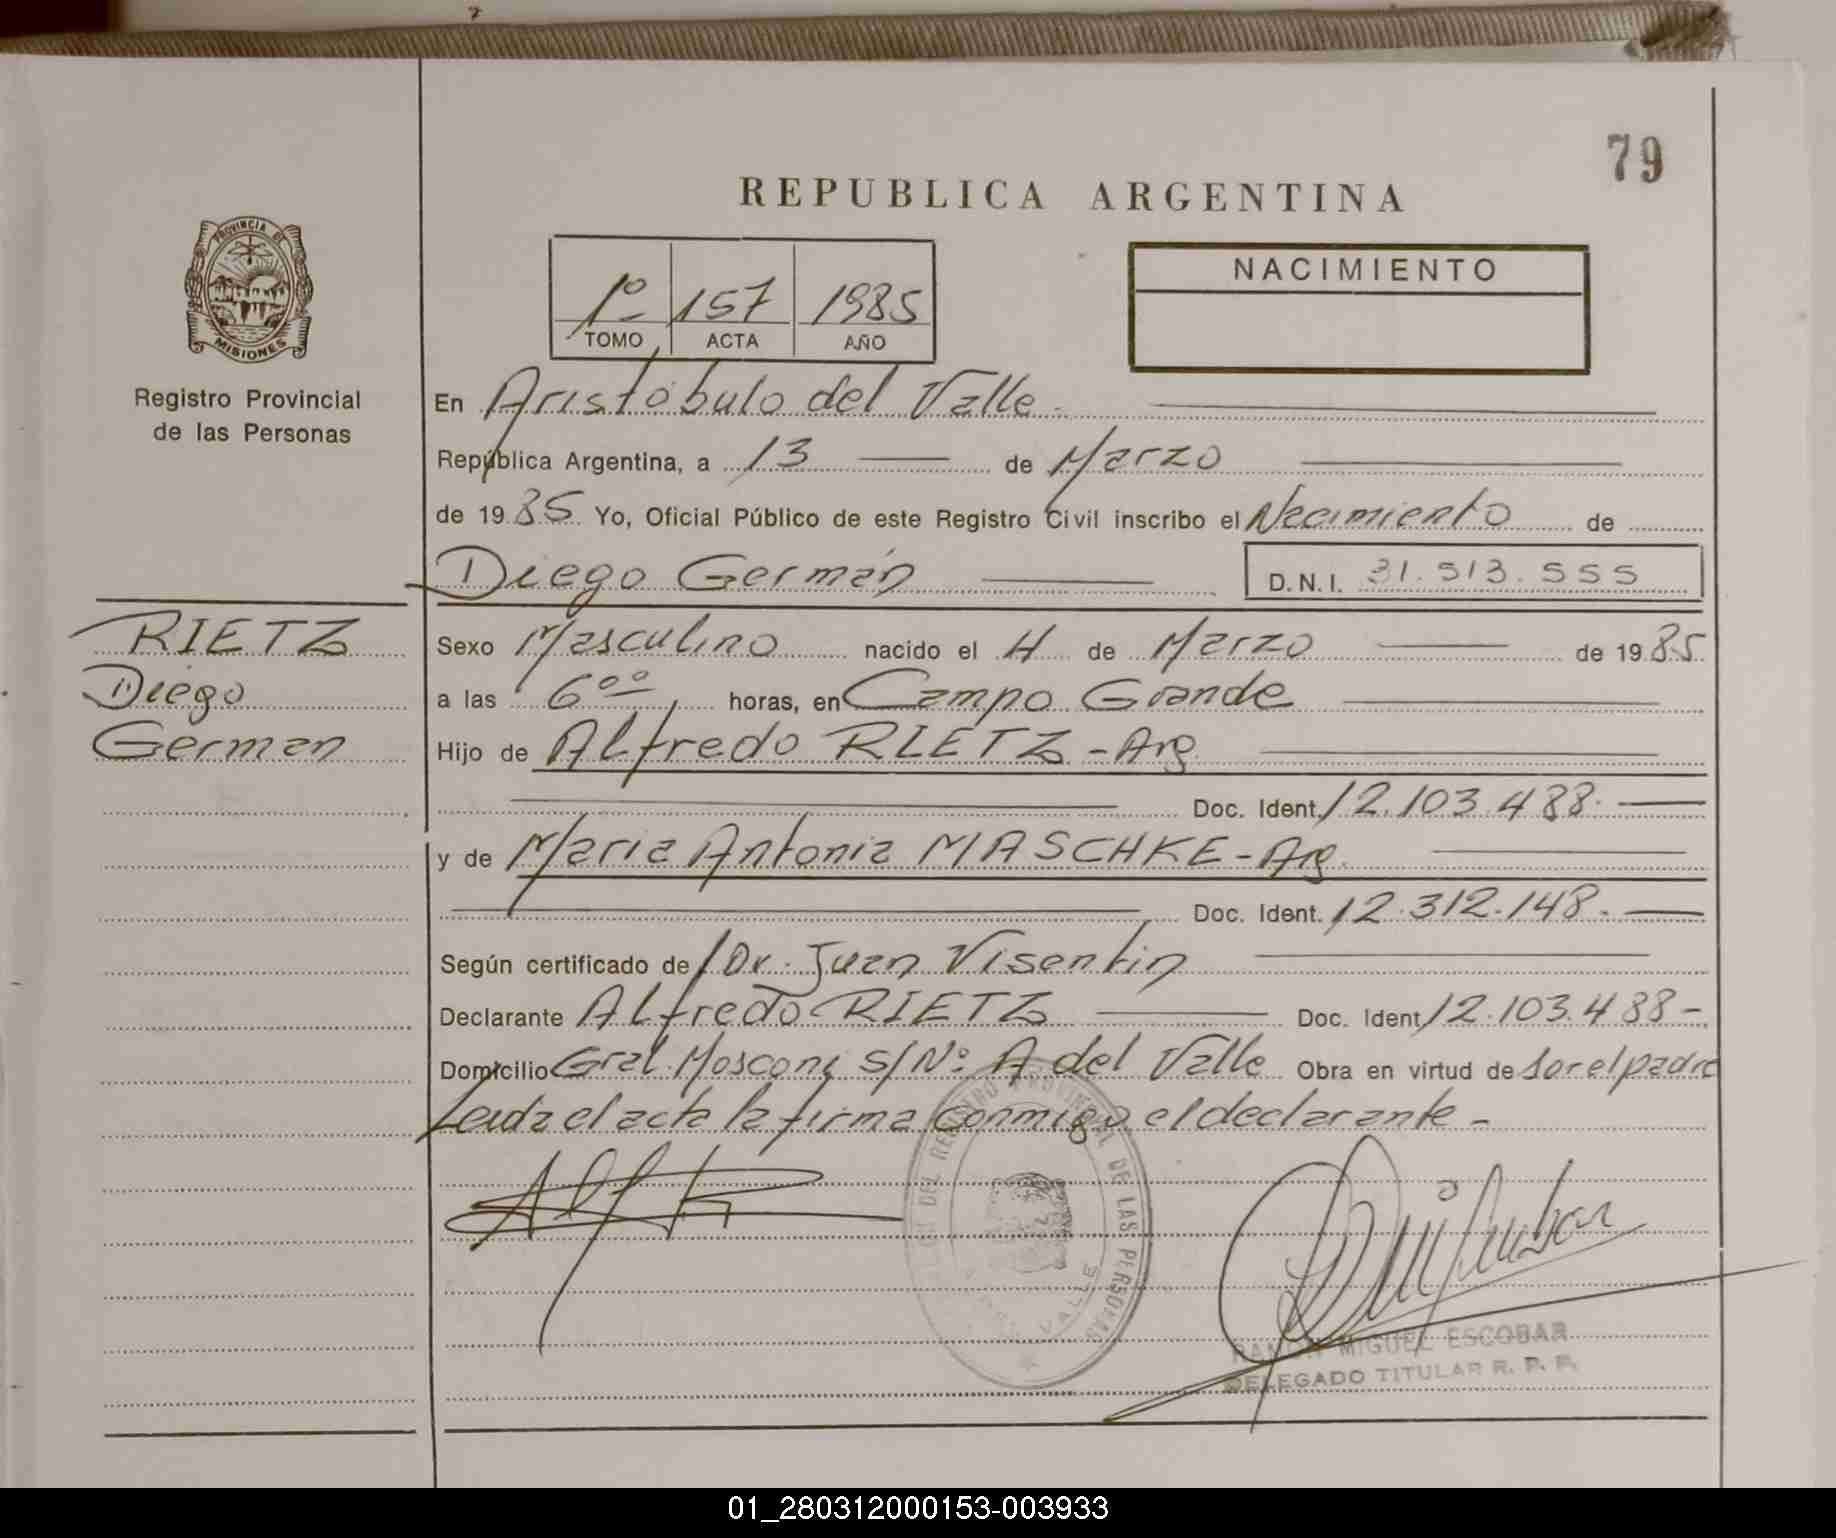 79
REPUBLICA ARGENTINA
PROVINCIA DE
MISIONES
Registro Provincial
de las Personas
1º 157 1985
TOMO ACTA AÑO
NACIMIENTO
En Aristóbulo del Valle.
República Argentina, a 13 de Marzo
de 1985 Yo, Oficial Público de este Registro Civil inscribo el Nacimiento de
Diego Germán D.N.I. 31.513.555
RIETZ
Diego
German
Sexo Masculino nacido el 4 de Marzo de 1985
a las 6ºº horas, en Campo Grande
Hijo de Alfredo RIETZ - Arg.
Doc. Ident. 12.103.488.
y de Maria Antonia MASCHKE - Arg.
Doc. Ident. 12.312.148.
Según certificado de Dr. Juan Visentin
Declarante Alfredo RIETZ Doc. Ident 12.103.488-
Domicilio Gral. Mosconi S/Nº A del Valle Obra en virtud de ser el padre
Leida el acta la firma conmigo el declarante -
DEL REGISTRO PROVINCIAL DE LAS PERSONAS
VALLE
RAMON MIGUEL ESCOBAR
DELEGADO TITULAR R. P. P.
01_280312000153-003933